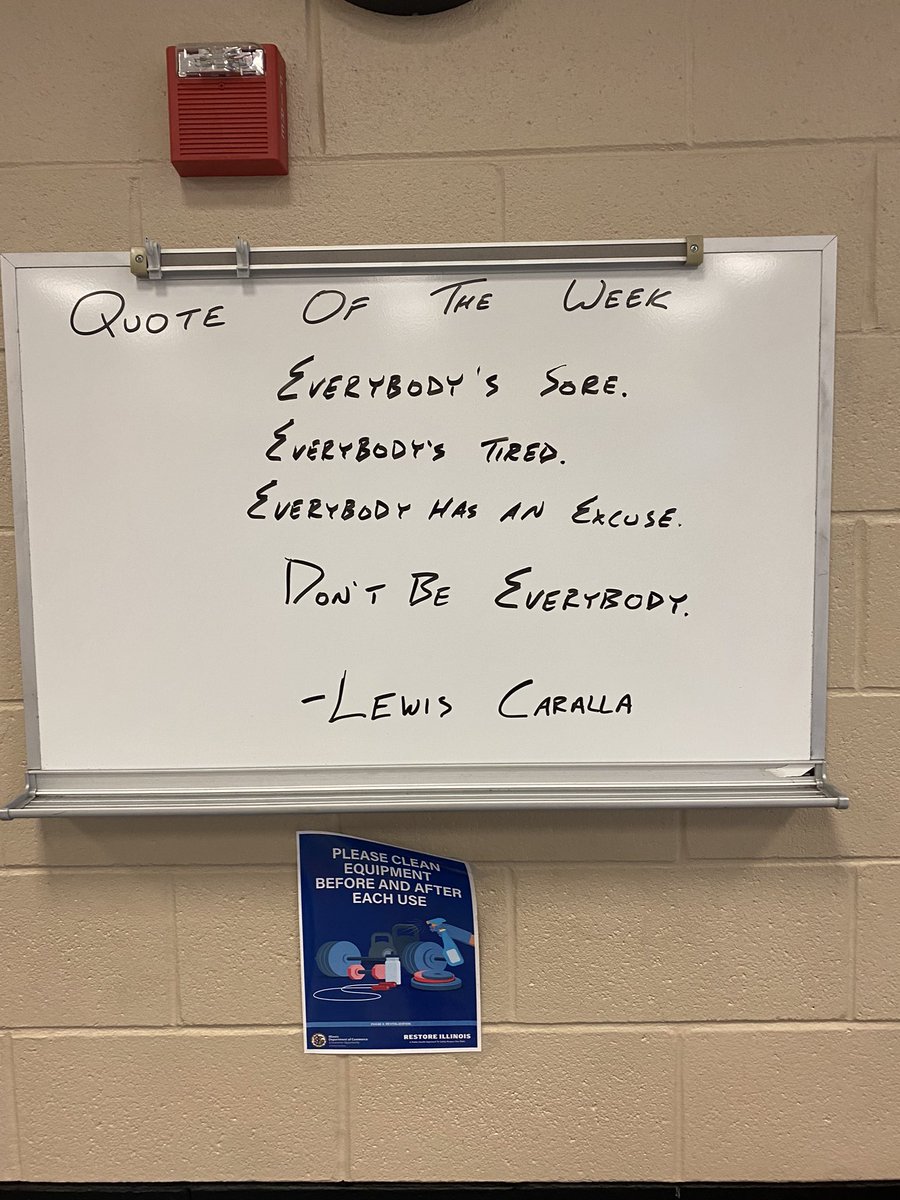 Quote Of The Week
Everybody's Sore.
Everybody's Tired.
Everybody Has An Excuse.
Don't Be Everybody.
-Lewis Caralla
PLEASE CLEAN
EQUIPMENT
BEFORE AND AFTER
EACH USE
Illinois
Department of Commerce
RESTORE ILLINOIS